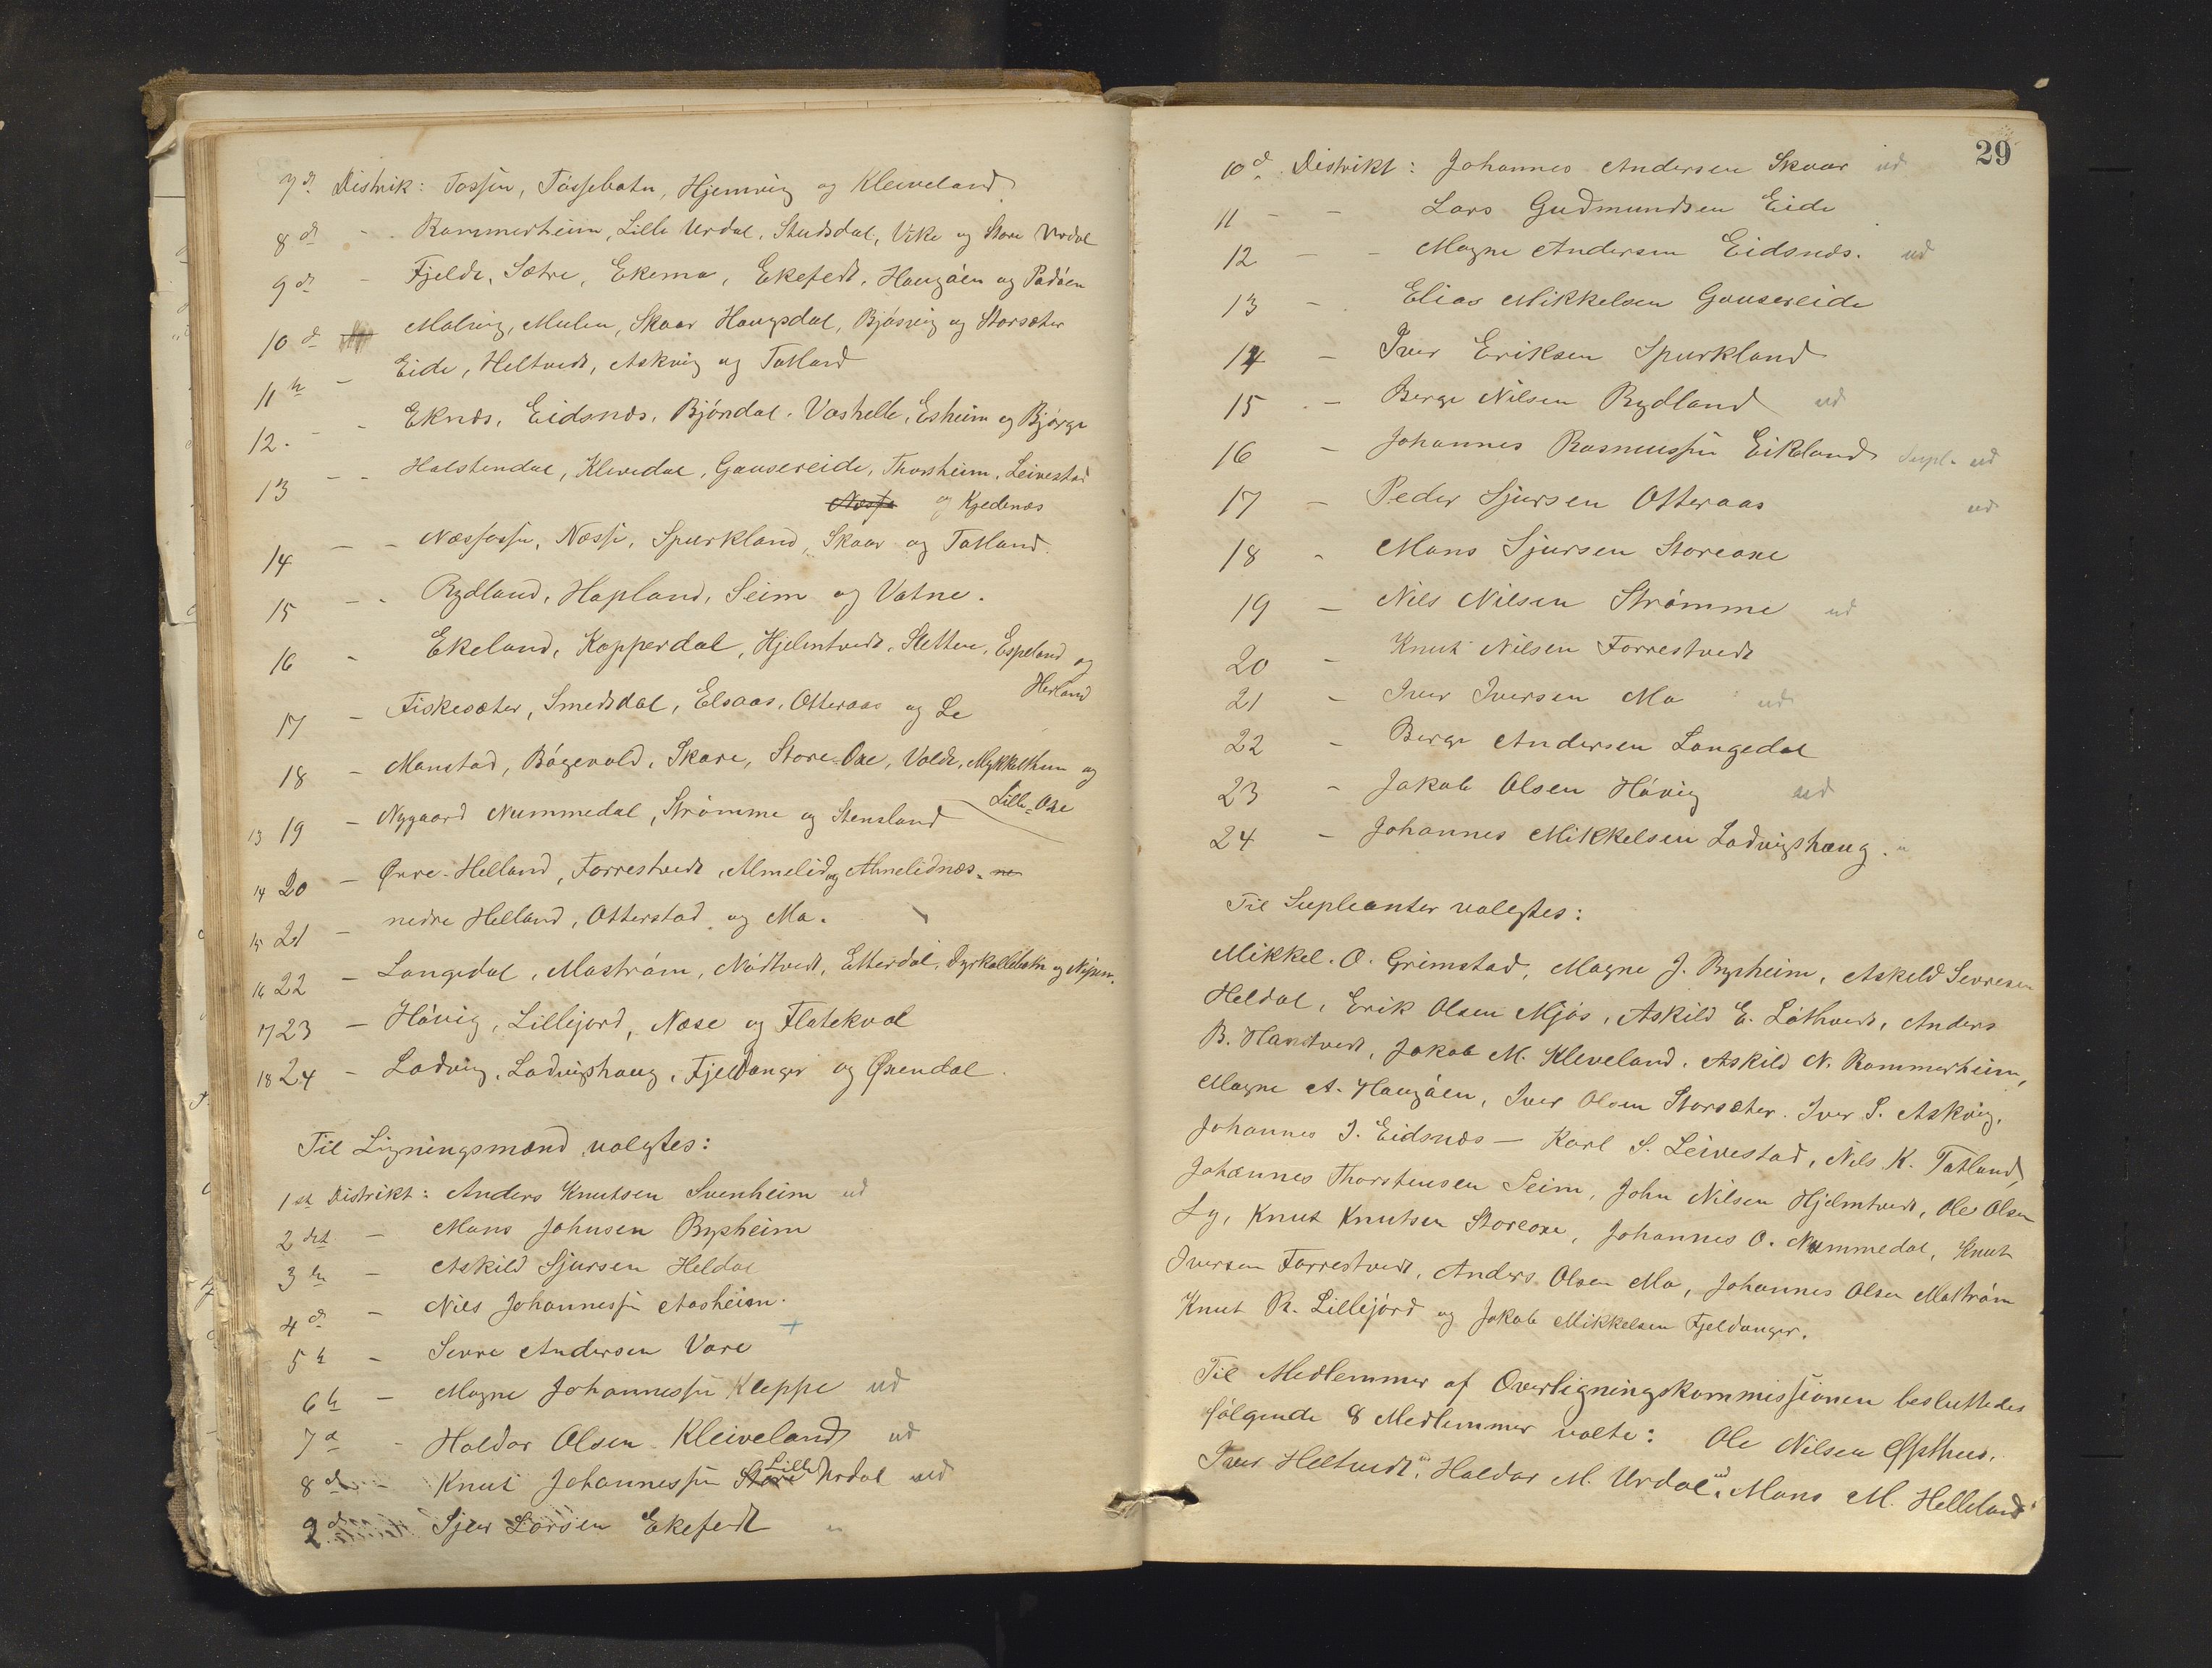 7de Distrik: Tossen, Tøssebotn, Hjemvig og Kleiveland
8de - Rammerheim, Lille Urdal, Studsdal, Vike og Store Urdal
9de - Fjelde, Sætre, Ekemo, Ekefedt, Haugøen og Padøen
10de Molvig, Mulen, Skaar Haugsdal, Bjøsvig og Storsæter
11te - Eide, Heltvedt, Askvig og Tatland
12. - - Eknæs, Eidsnæs, Bjøndal, Vashelle, Esheim og Bjørge
13 - - Halstendal, Klevedal, Gausereide, Thorsheim, Leivestad
Næsse og Kjedenæs
14 - - Næsfossen, Næsse, Spurkland, Skaar og Tatland.
15 - - Rydland, Hopland, Seim og Vatne.
16 - Ekeland, Kopperdal, Hjelmtvedt, Sletten, Espeland og
Herland
17 - Fiskesæter, Smedsdal, Elsaas, Otteraas og Le
18 - Manstad, Bøgevold, Skare, Store-Oxe, Volde, Mykkeltun og
Lille-Oxe
13 19 - Nygaard Nummedal, Strømme og Stensland
14 20 - Øvre-Helland, Forrestvedt, Almelid og Almelidnæs. ne
15 21 - nedre Helland, Otterstad og Mo.
16 22 - Langedal, Mostrøm, Nødtvedt, Etterdal, Dyrkollebotn og Nipen.
17 23 - Høvig, Lillejord, Næse og Flatekval
18 24 - Ladvig, Ladvigshaug, Fjeldanger og Øxendal.
Til Ligningsmænd valgtes:
1ste Distrikt: Anders Knutsen Svenheim ud
2det - Mons Johnsen Rypheim
3die - Askild Sjursen Heldal
4de - Nils Johannessen Aasheim.
5te - Sevre Andersen Vare
6te - Magne Johannessen Kleppe ud
7de - Haldor Olsen Kleiveland ud
8de - Knut Johannessen Store Lille Urdal ud
9de Sjur Larsen Ekefedt
29
10de Distrikt: Johannes Andersen Skaar ud
11 - - Lars Gudmundsen Eide
12 - - Magne Andersen Eidsnæs. ud
13 - Elias Mikkelsen Gausereide
14 - Iver Eriksen Spurkland
15 - Berge Nilsen Rydland ud
16 - Johannes Rasmussen Eikeland Supl. ud
17 - Peder Sjursen Otteraas ud
18 - Mons Sjursen Storeoxe
19 - Nils Nilsen Strømme ud
20 - Knut Nilsen Forrestvedt
21 - Iver Iversen Mo ud
22 - Berge Andersen Langedal
23 - Jakob Olsen Høvig ud
24 - Johannes Mikkelsen Ladvigshaug.
Til Supleanter valgtes:
Mikkel O. Grimstad, Magne J. Rypheim, Askeld Sevresen
Heldal, Erik Olsen Mjøs, Askild E. Løthvedt, Anders
B. Hanstvedt, Jakob M. Kleveland, Askild N. Rammerheim,
Magne A. Haugøen, Iver Olsen Storsæter. Iver S. Askvig,
Johannes J. Eidsnæs - Karl S. Leivestad, Nils K. Tatland,
Johannes Thorstensen Seim, John Nilsen Hjelmtvedt, Ole Olsen
Ly, Knut Knutsen Storeoxe, Johannes O. Nummedal, Knut
Iversen Forrestvedt, Anders Olsen Mo, Johannes Olsen Mostrøm
Knut R. Lillejord og Jakob Mikkelsen Fjeldanger.
Til Medlemmer af Overligningskommissionen besluttedes
følgende 8 Medlemmer valte: Ole Nilsen Øpsthus,
Iver Heltvedt, Haldor M. Urdal, Mons M. Helleland